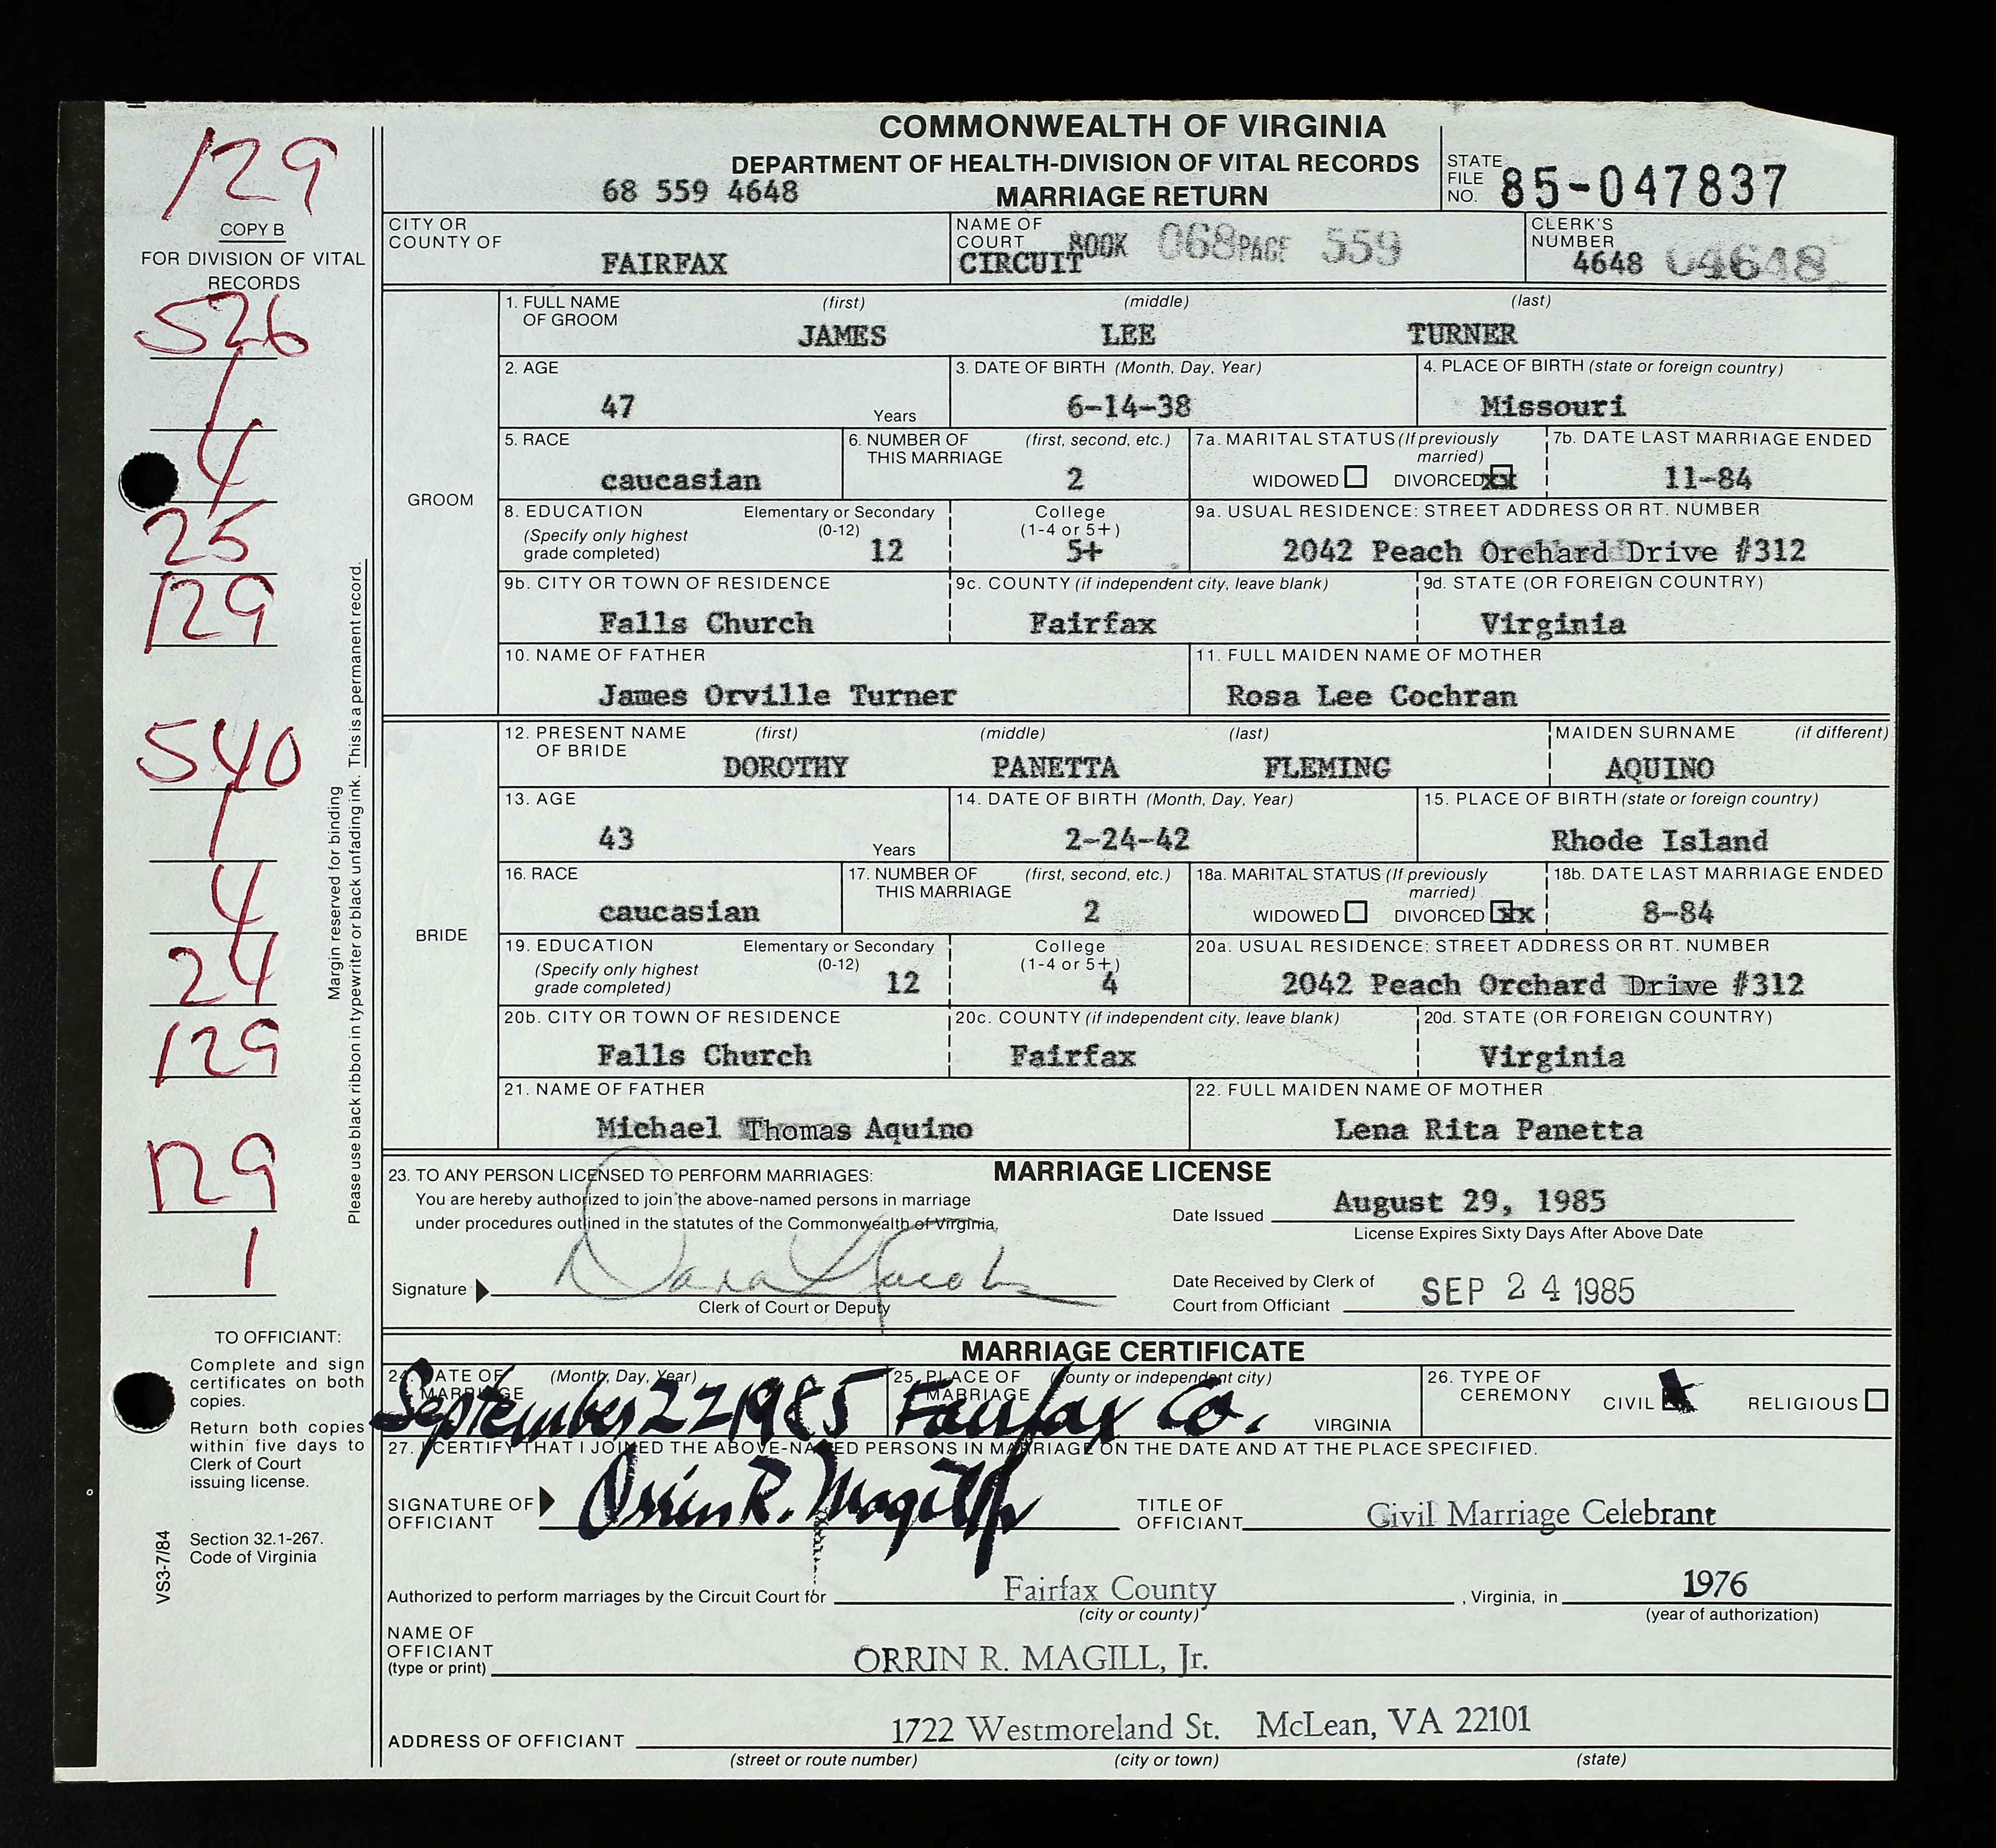 129
COPY B
FOR DIVISION OF VITAL
RECORDS
526
1
4
25
129
540
1
4
24
129
129
1
Margin reserved for binding
Please use black ribbon in typewriter or black unfading ink. This is a permanent record.
TO OFFICIANT:
Complete and sign
certificates on both
copies.
Return both copies
within five days to
Clerk of Court
issuing license.
Section 32.1-267.
Code of Virginia
VS3-7/84
COMMONWEALTH OF VIRGINIA
DEPARTMENT OF HEALTH-DIVISION OF VITAL RECORDS
68 559 4648 MARRIAGE RETURN
STATE FILE NO. 85-047837
CITY OR COUNTY OF FAIRFAX
NAME OF COURT CIRCUIT BOOK 068 PAGE 559
CLERK'S NUMBER 4648 04648
GROOM
1. FULL NAME OF GROOM (first) (middle) (last)
JAMES LEE TURNER
2. AGE 47 Years
3. DATE OF BIRTH (Month, Day, Year) 6-14-38
4. PLACE OF BIRTH (state or foreign country) Missouri
5. RACE caucasian
6. NUMBER OF THIS MARRIAGE (first, second, etc.) 2
7a. MARITAL STATUS (If previously married) WIDOWED DIVORCED xx
7b. DATE LAST MARRIAGE ENDED 11-84
8. EDUCATION (Specify only highest grade completed) Elementary or Secondary (0-12) 12
College (1-4 or 5+) 5+
9a. USUAL RESIDENCE: STREET ADDRESS OR RT. NUMBER 2042 Peach Orchard Drive #312
9b. CITY OR TOWN OF RESIDENCE Falls Church
9c. COUNTY (if independent city, leave blank) Fairfax
9d. STATE (OR FOREIGN COUNTRY) Virginia
10. NAME OF FATHER James Orville Turner
11. FULL MAIDEN NAME OF MOTHER Rosa Lee Cochran
BRIDE
12. PRESENT NAME OF BRIDE (first) (middle) (last) MAIDEN SURNAME (if different)
DOROTHY PANETTA FLEMING AQUINO
13. AGE 43 Years
14. DATE OF BIRTH (Month, Day, Year) 2-24-42
15. PLACE OF BIRTH (state or foreign country) Rhode Island
16. RACE caucasian
17. NUMBER OF THIS MARRIAGE (first, second, etc.) 2
18a. MARITAL STATUS (If previously married) WIDOWED DIVORCED xx
18b. DATE LAST MARRIAGE ENDED 8-84
19. EDUCATION (Specify only highest grade completed) Elementary or Secondary (0-12) 12
College (1-4 or 5+) 4
20a. USUAL RESIDENCE: STREET ADDRESS OR RT. NUMBER 2042 Peach Orchard Drive #312
20b. CITY OR TOWN OF RESIDENCE Falls Church
20c. COUNTY (if independent city, leave blank) Fairfax
20d. STATE (OR FOREIGN COUNTRY) Virginia
21. NAME OF FATHER Michael Thomas Aquino
22. FULL MAIDEN NAME OF MOTHER Lena Rita Panetta
23. TO ANY PERSON LICENSED TO PERFORM MARRIAGES: MARRIAGE LICENSE
You are hereby authorized to join the above-named persons in marriage
under procedures outlined in the statutes of the Commonwealth of Virginia.
Date Issued August 29, 1985
License Expires Sixty Days After Above Date
Signature
Clerk of Court or Deputy
Date Received by Clerk of Court from Officiant SEP 24 1985
MARRIAGE CERTIFICATE
24. DATE OF MARRIAGE (Month, Day, Year) September 22 1985
25. PLACE OF MARRIAGE (county or independent city) Fairfax Co. VIRGINIA
26. TYPE OF CEREMONY CIVIL RELIGIOUS
27. I CERTIFY THAT I JOINED THE ABOVE-NAMED PERSONS IN MARRIAGE ON THE DATE AND AT THE PLACE SPECIFIED.
SIGNATURE OF OFFICIANT Orrin R. Magill Jr
TITLE OF OFFICIANT Civil Marriage Celebrant
Authorized to perform marriages by the Circuit Court for Fairfax County, Virginia, in 1976
(city or county) (year of authorization)
NAME OF OFFICIANT (type or print) ORRIN R. MAGILL, Jr.
ADDRESS OF OFFICIANT 1722 Westmoreland St. McLean, VA 22101
(street or route number) (city or town) (state)